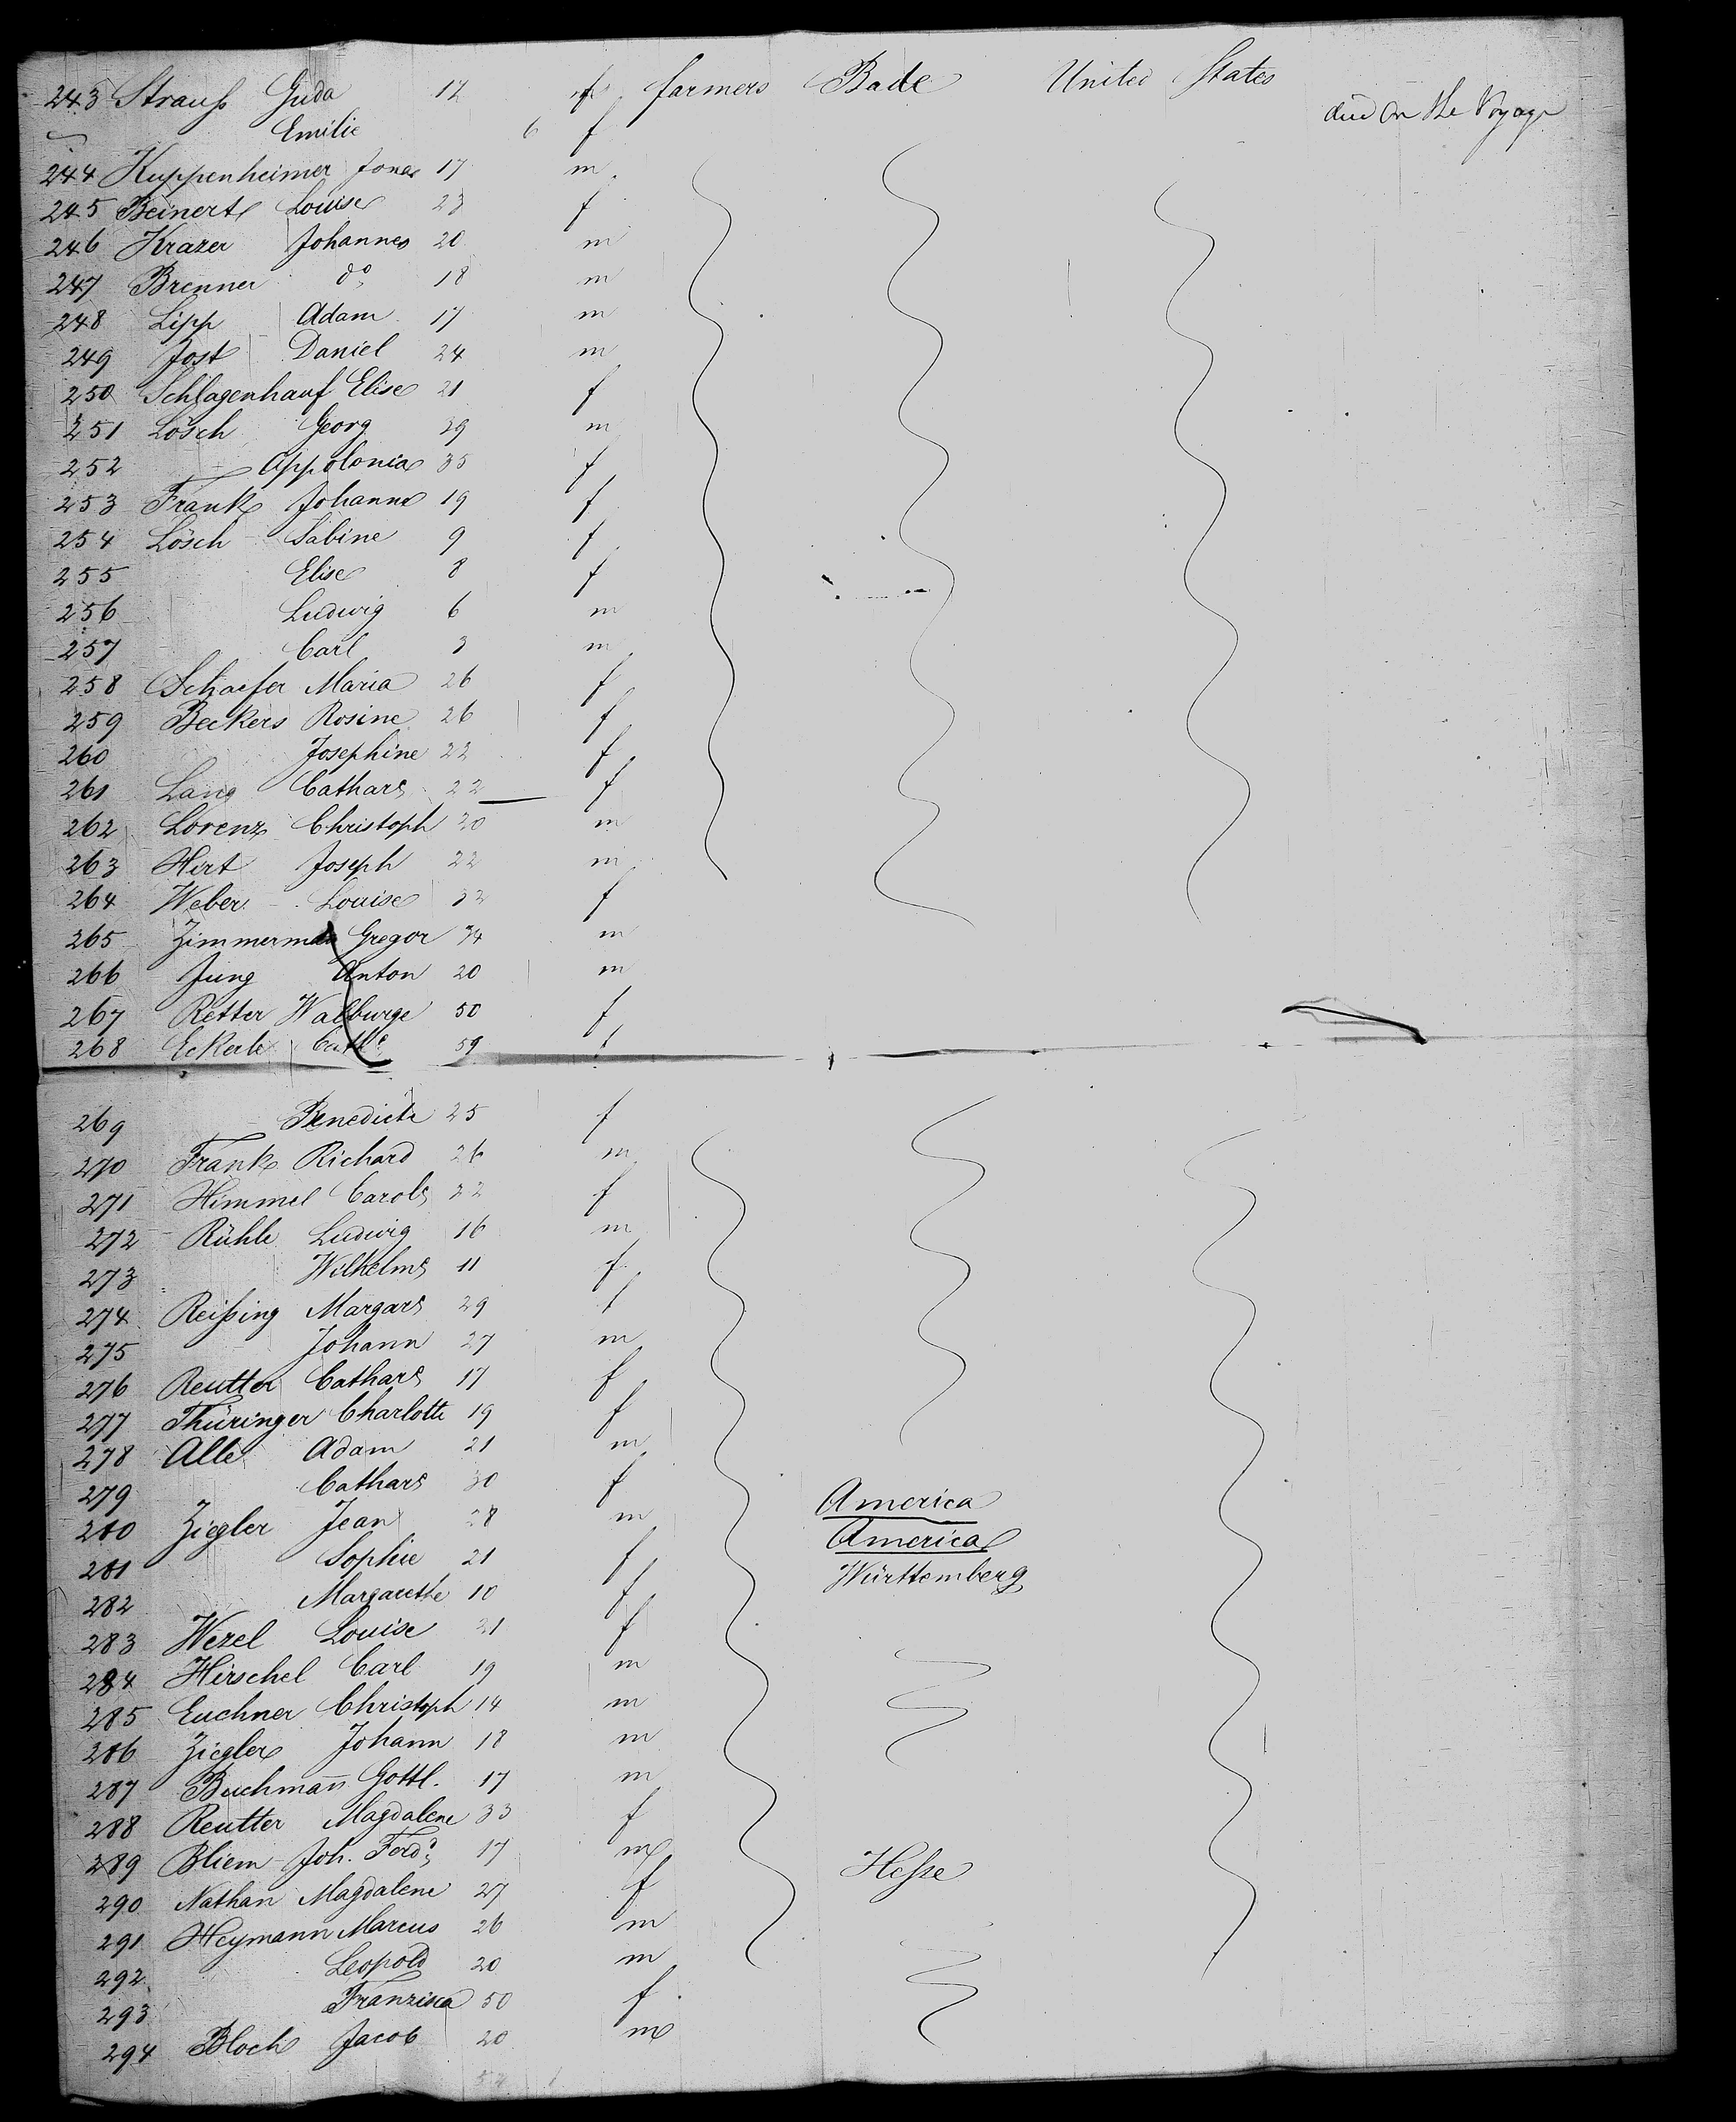 243 Strauß Guda 12 f farmers Bade United States
Emilie 6 f died on the Voyage
244 Kuppenheimer Jonas 17 m
245 Beinert Louise 23 f
246 Krazer Johannes 20 m
247 Brenner do 18 m
248 Lipp Adam 17 m
249 Jost Daniel 24 m
250 Schlagenhauf Elise 21 f
251 Lösch Georg 39 m
252 Appolonia 35 f
253 Frank Johanna 19 f
254 Lösch Sabine 9 f
255 Elise 8 f
256 Ludwig 6 m
257 Carl 3 m
258 Schaefer Maria 26 f
259 Beckers Rosine 26 f
260 Josephine 22 f
261 Lang Cathare 22 f
262 Lorenz Christoph 20 m
263 Hirt Joseph 22 m
264 Weber Louise 32 f
265 Zimmerman Gregor 34 m
266 Jung Anton 20 m
267 Retter Walburge 50 f
268 Eckerle Cathe 59 f
269 Benedicte 25 f
270 Frank Richard 26 m
271 Himmel Carole 22 f
272 Rühle Ludwig 16 m
273 Wilhelme 11 f
274 Reißing Margare 29 f
275 Johann 27 m
276 Reutter Cathare 17 f
277 Thüringer Charlotte 19 f
278 Alle Adam 21 m
279 Cathare 30 f
280 Ziegler Jean 28 m America
281 Sophie 21 f America
282 Margarethe 10 f Württemberg
283 Wezel Louise 21 f
284 Hirschel Carl 19 m
285 Euchner Christoph 14 m
286 Ziegler Johann 18 m
287 Buchman̄ Gottl. 17 m
288 Reutter Magdalene 33 f
289 Bliem Joh. Ferd. 17 m Heße
290 Nathan Magdalene 27 f
291 Heymann Marcus 26 m
292 Leopold 20 m
293 Franzisca 50 f
294 Bloch Jacob 20 m